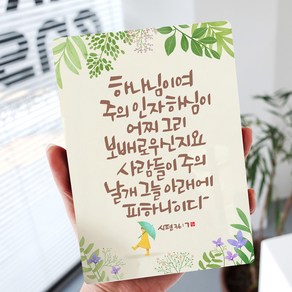 하나님이여
주의 인자하심이
어찌 그리
보배로우신지요
사람들이 주의
날개 그늘 아래에
피하나이다